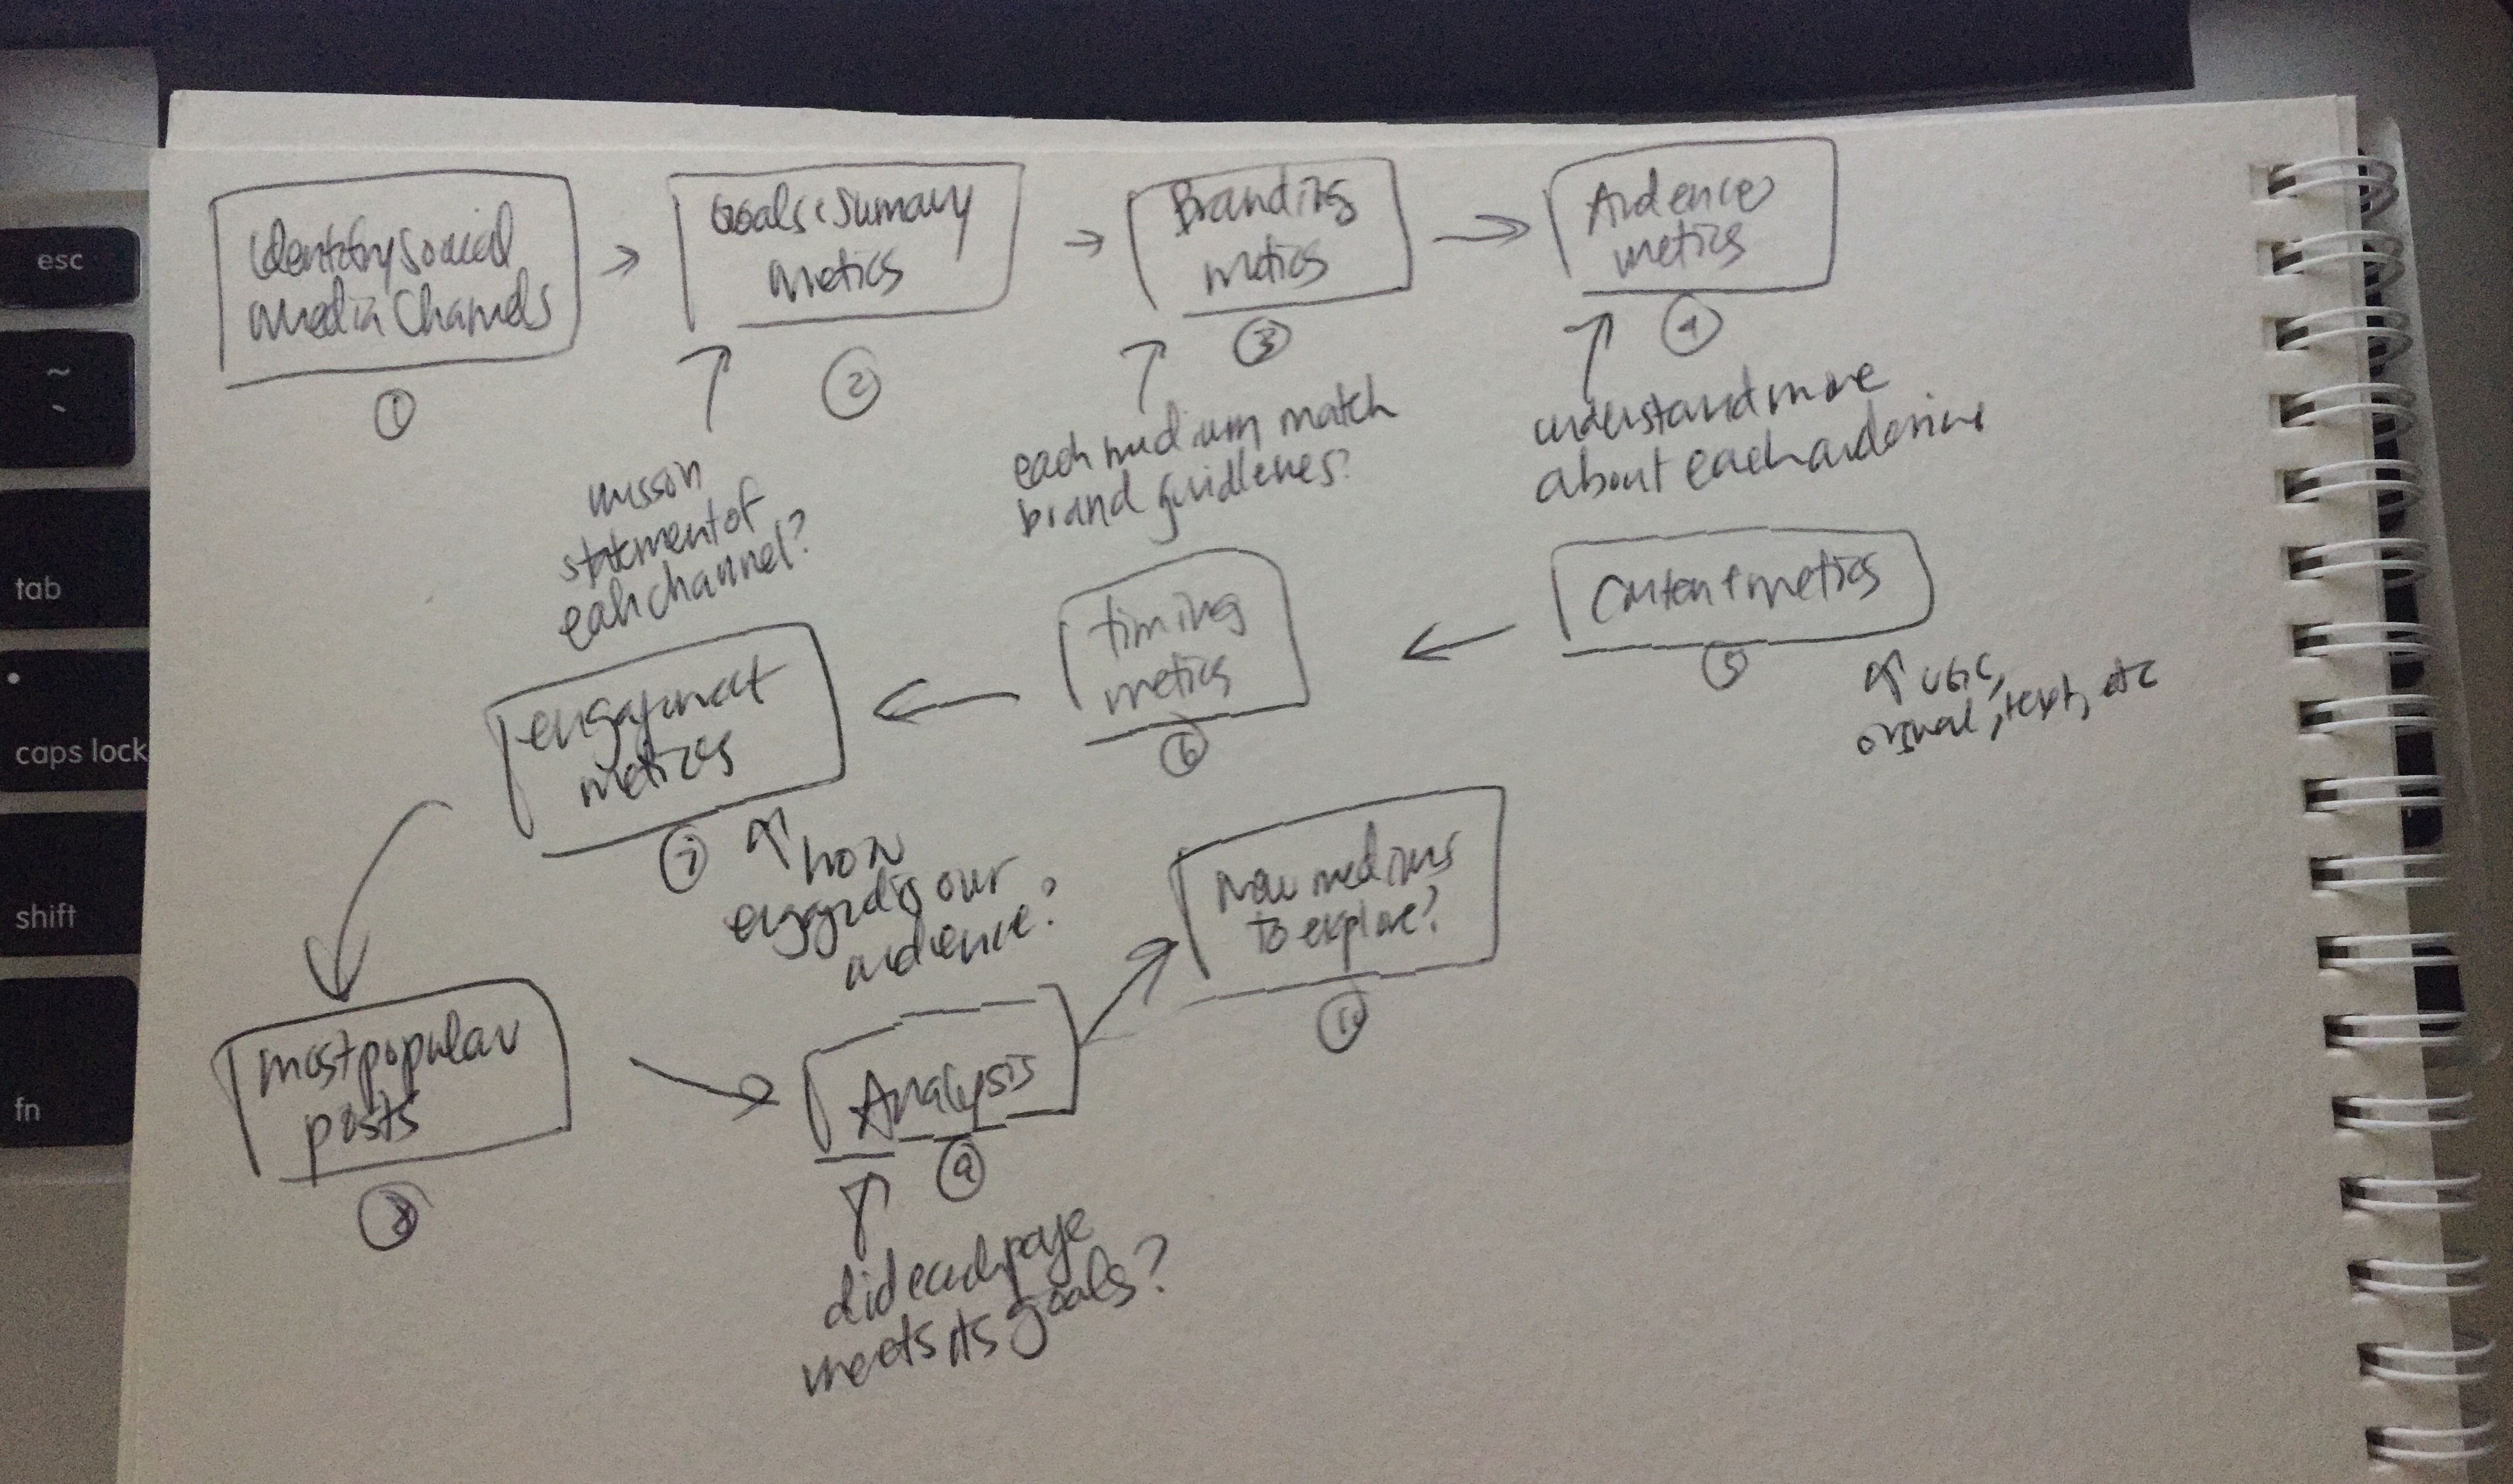 esc
~
`
tab
caps lock
shift
fn
Identify social
media Channels
①
Goals & Summary
metrics
②
mission
statement of
each channel?
Branding
metrics
③
each medium match
brand guidlenes?
Audience
metrics
④
understand more
about each audience
Content metrics
⑤
UGC,
original, text, etc
timing
metrics
⑥
engagement
metrics
⑦
how
engaged is our
audience?
most popular
posts
⑧
Analysis
⑨
did each page
meets its goals?
New mediums
to explore?
⑩